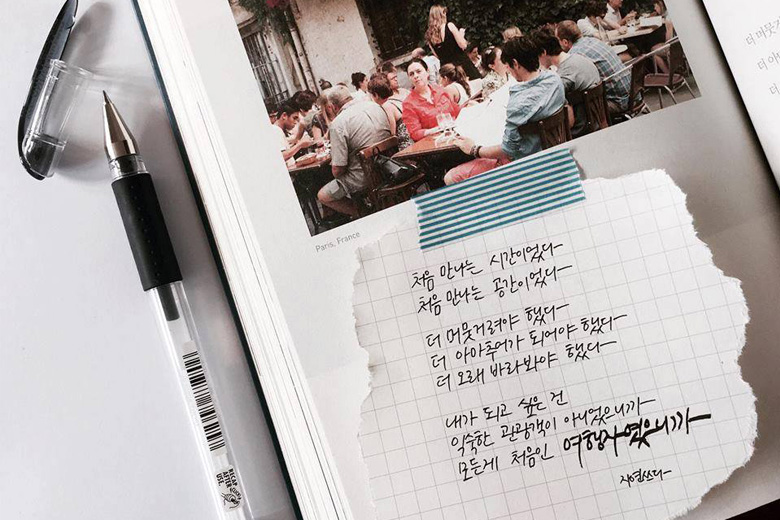 Paris, France
처음 만나는 시간이었다
처음 만나는 공간이었다
더 머뭇거려야 했다
더 아마추어가 되어야 했다
더 오래 바라봐야 했다
내가 되고 싶은 건
익숙한 관광객이 아니었으니까
모든게 처음인 여행자였으니까
지영쓰다
더 머뭇거
더 아
더
RECAP
AFTER
USE